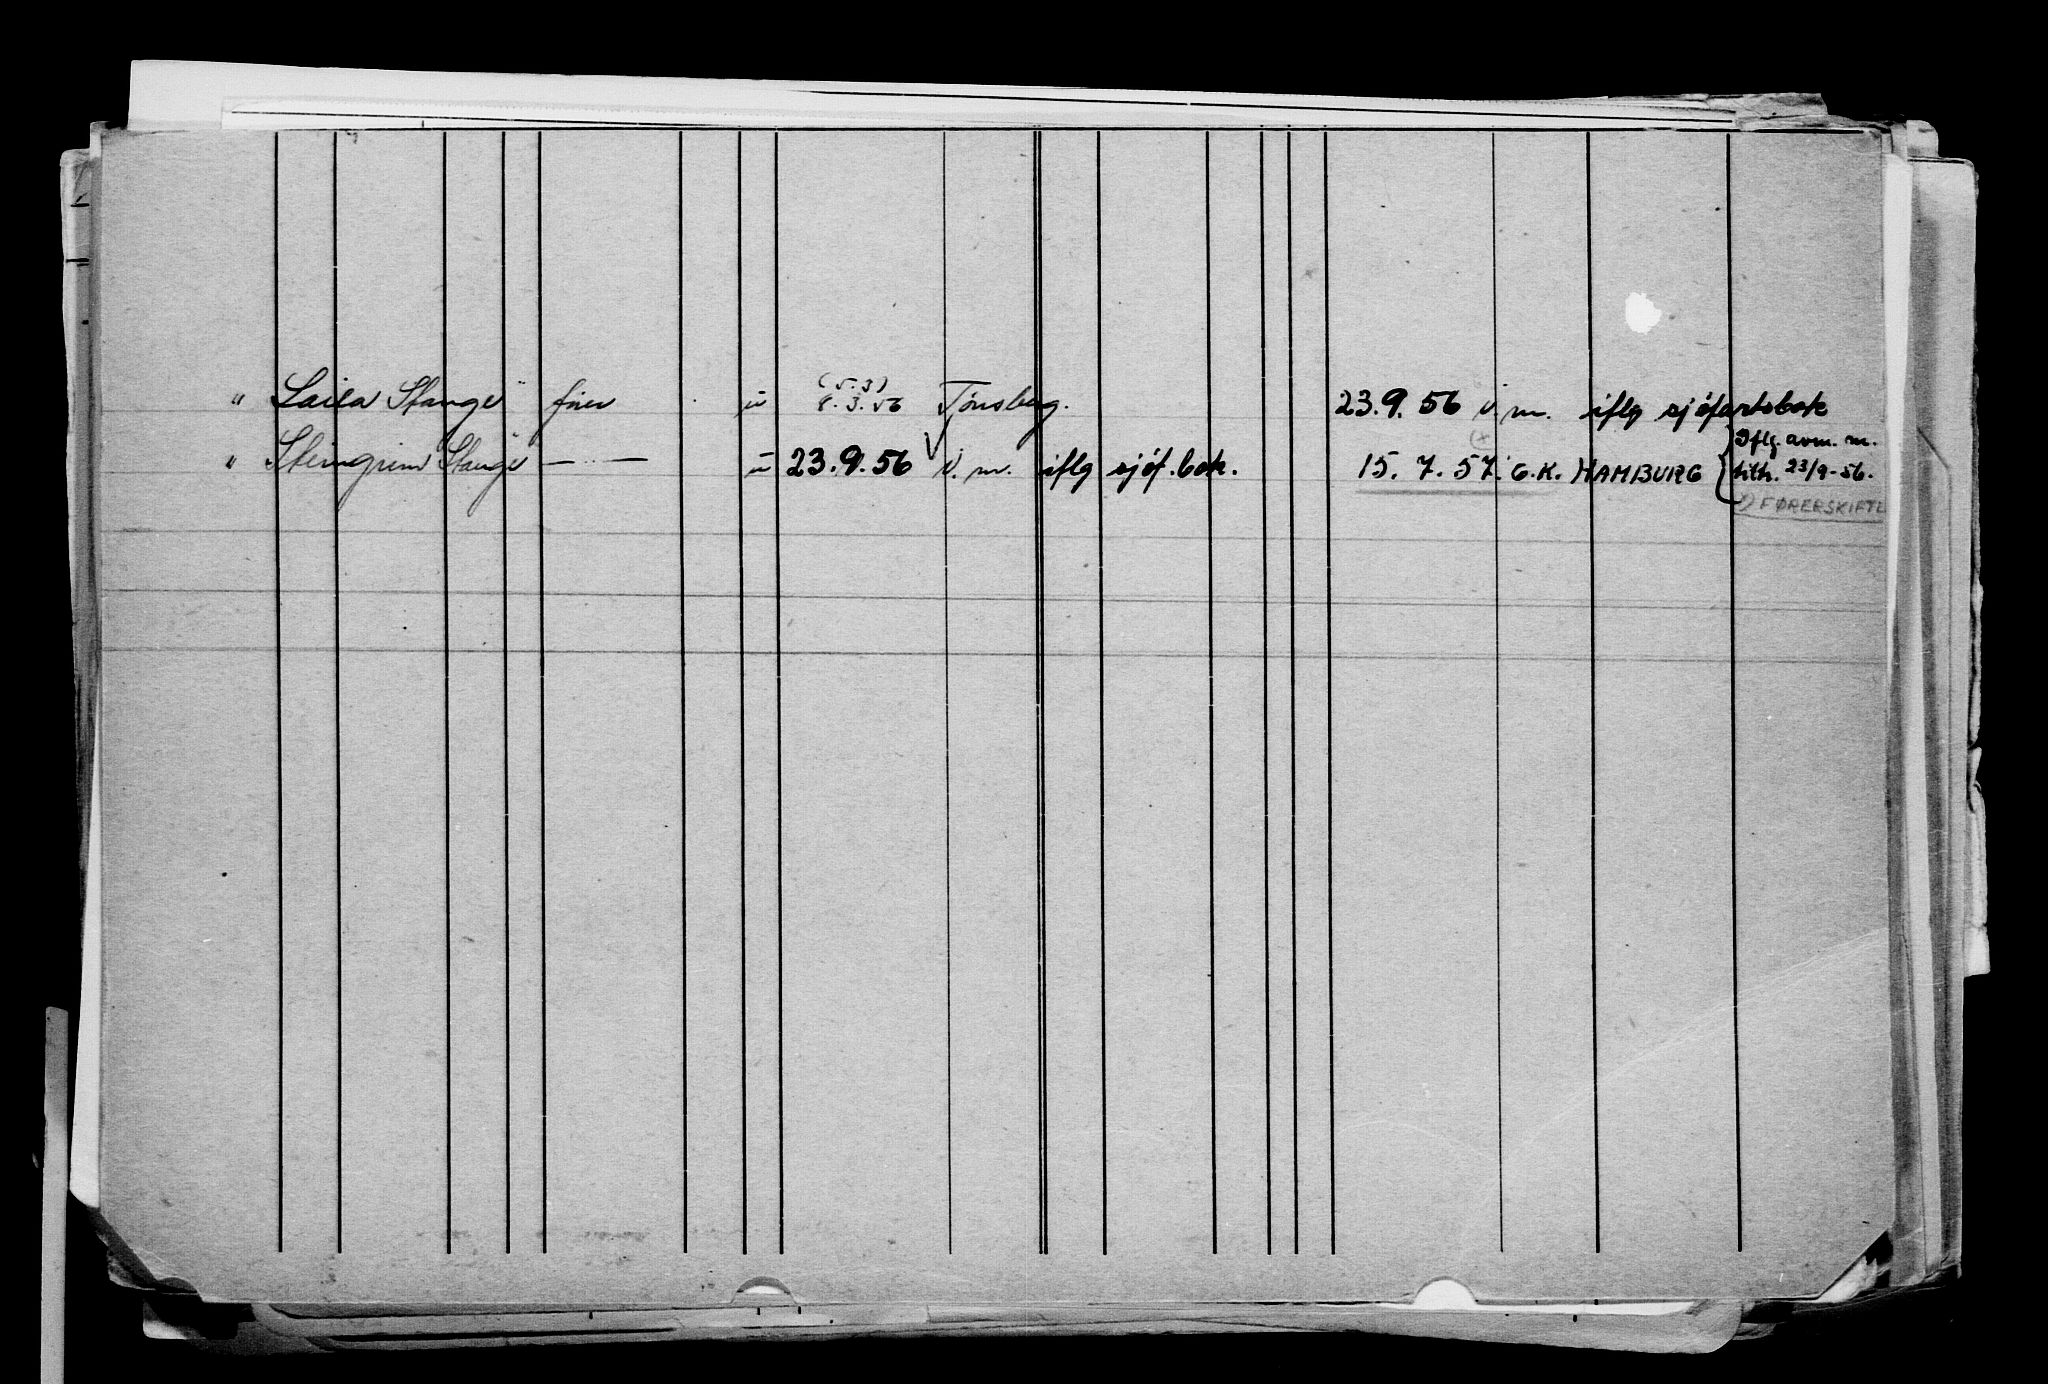 (5.3)
" Laila Stange" fører u 8.3.56 Tønsberg. 23.9.56 i.m. iflg sjøfartsbok
" Steingrim Stange" —"— u 23.9.56 i.m. iflg sjøf.bok. 15.7.57. G.K. HAMBURG { Iflg. avm. m.
tilh. 23/9-56.
x) FØRERSKIFTE